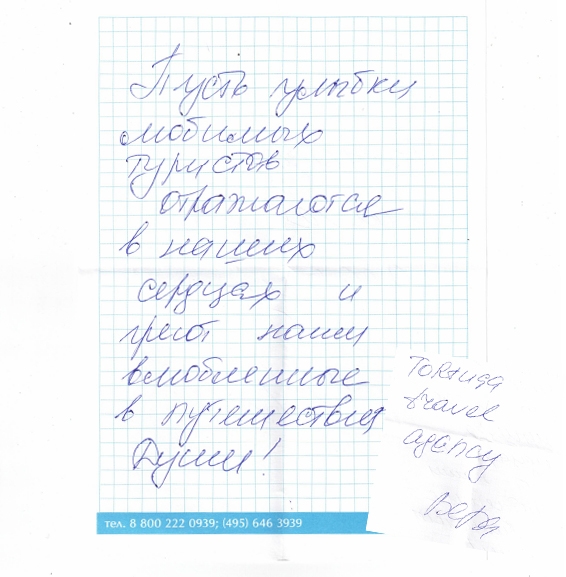 Пусть улыбки
любимых
туристов
отражаются
в наших
сердцах и
греют наши
влюбленные
в путешествия
души!
Tortuga
travel
agency
Вера
тел. 8 800 222 0939; (495) 646 3939